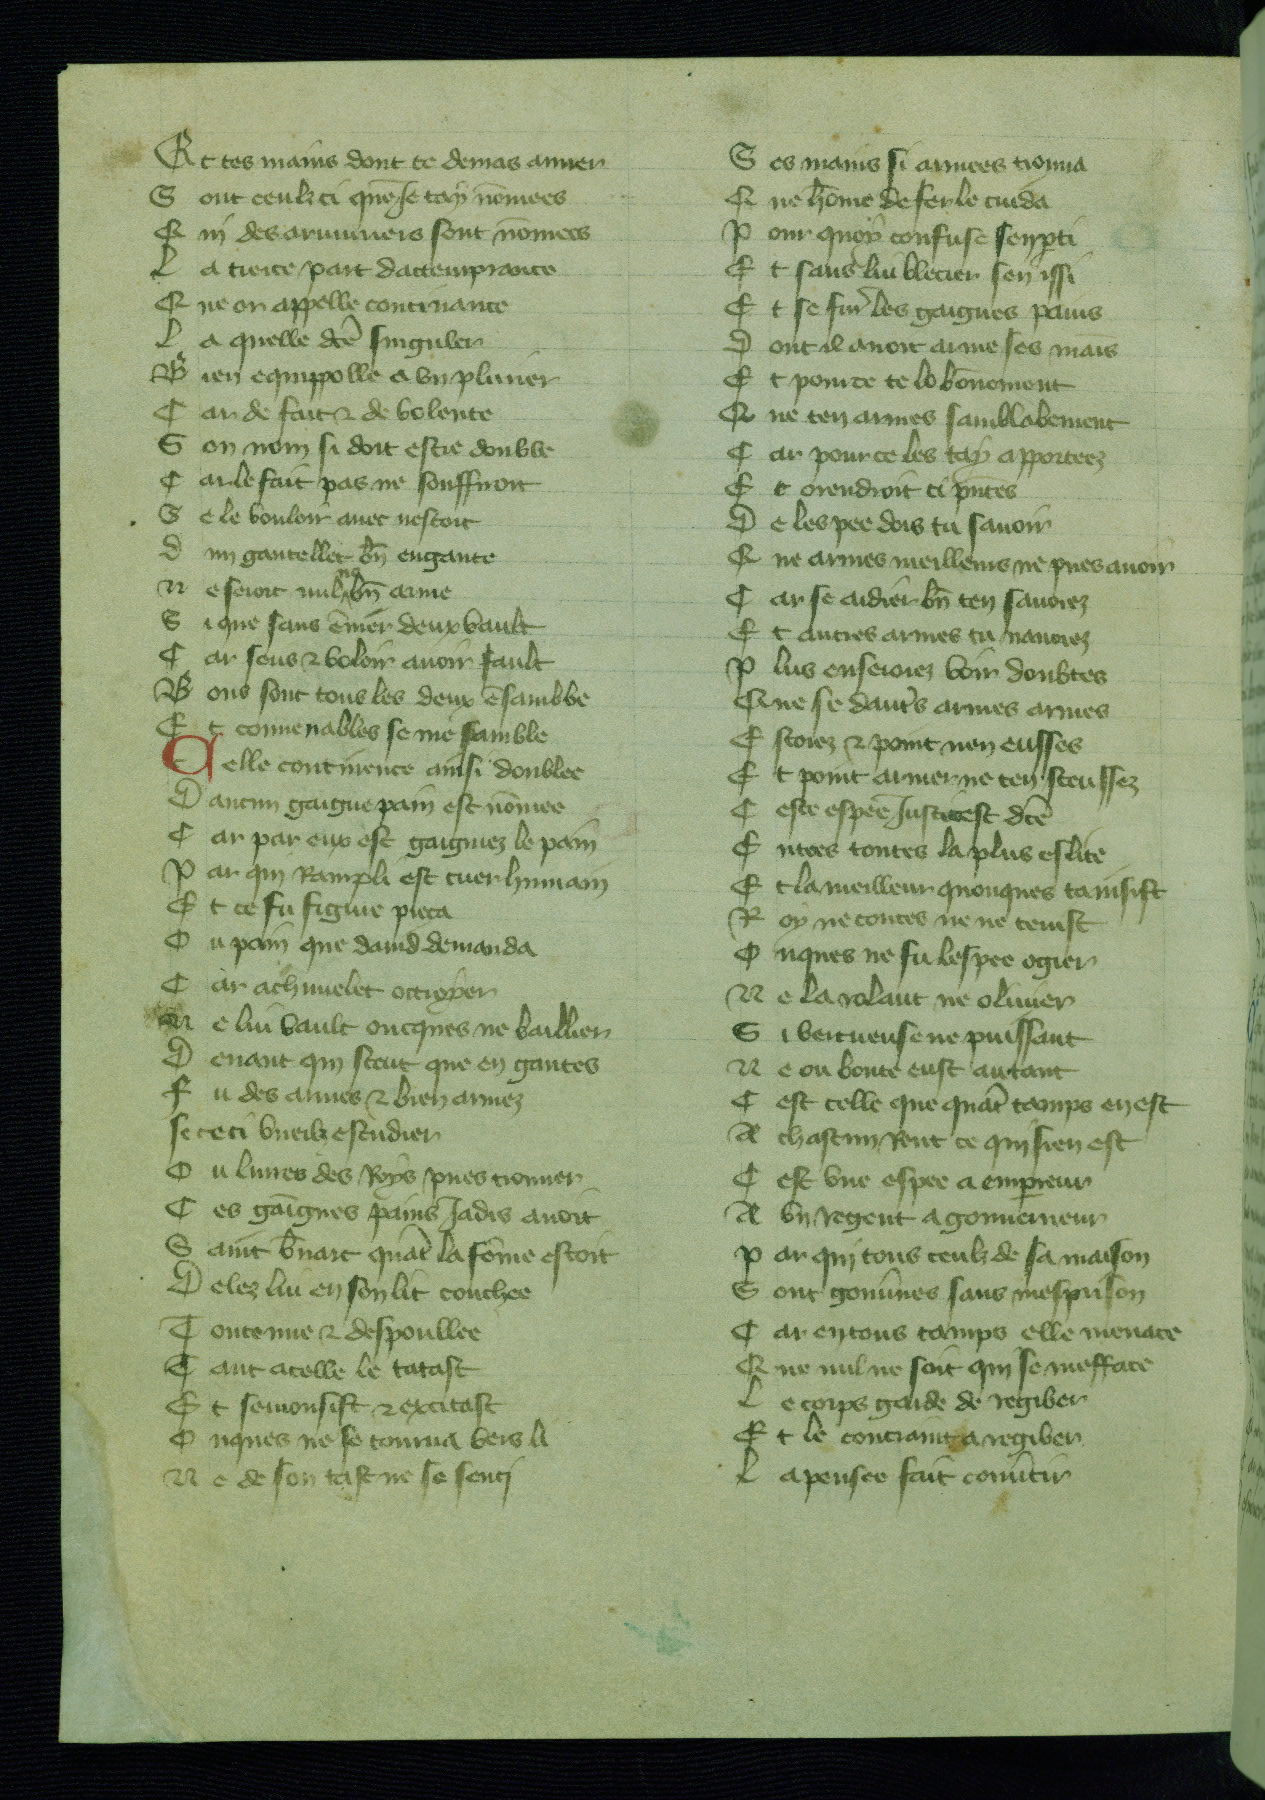 Et tes mains dont te demas armer
Sont ceulx ci que Je tay nōmees
Qui des armuriers sont nōmees
La tierce part dattemprance
Que on appelle continance
La quelle dcē singuler
Bien equippolle a vn plurier
Car de fait ⁊ de volente
Son nom si doit estre double
Car le fait pas ne souffiroit
Se le vouloir auec nestoit
dun gantellet bn̄ engante
Ne seroit nulz ne bn̄ arme
Si que sans ēmer deux vault
Car sens ⁊ voloir auoir fault
Bons sont tous les deux ēsamble
Et conuenables se me samble
Celle continence ainsi doublee
Daucun gaigne pain est nōmee
Car par eux est gaigniez le pain
Par qui Rampli est cuer humain
Et ce fu figure pieca
Ou pain que dauid demanda
Car achimelet octroyer
Ne lui vault oncques ne baillier
Deuant qui sceut que en gantes
Fu des armes ⁊ bien armez
se ceci vueilz estudier
Ou liures des Roys pues trouuer
Ces gaīgnes pains Jadis auoit
Saint b̄nart quāt la fōme estoit
Delez lui en son lit couchee
Toute nue ⁊ despoullee
Tant acelle le tatast
Et semonsist ⁊ excitast
Onques ne se tourna vers li
Ne de son tast ne se senti
Ses mains si armees trouua
Que hōme de fer le cuida
Pour quoy confuse sen p̄ti
Et sans lui blecier sen issi
Et se fur̄ les gaignes pains
Dont il auoit arme ses mais
Et pour ce te lo bōnement
Que ten armes samblablement
Car pour ce les tay apporteez
Et orendroit ci p̄ntes
De lespee dois tu sauoir
Que armes meilleurs ne pues auoir
Car se aidier bn̄ ten sauoiez
Et autres armes tu nauoiez
Plus enseroiez voir doubtes
Que se daut̄s armes armes
Estoiez ⁊ point nen eusses
Et point armer ne ten sceussez
Ceste espee Justice est dcē
Entres toutes la plus eslite
Et la meilleur quonques tainsist
Roy ne contes ne ne tenist
Onques ne fu lespee ogier
Ne la rolant ne oliuier
Si vertueuse ne puissant
Ne ou bonte eust autant
Cest celle que quāt tamps en est
A chascun Rent ce qui sien est
Cest vne espee a emp̄reur
A vn regent a gouuerneur
Par qui tous ceulz de sa maison
Sont gouūnes sans mesprison
Car en tous tamps elle menace
Que nul ne soit qui se mefface
Le corps garde de regiber
Et le contraint a regiber
La pensee fait couūtir